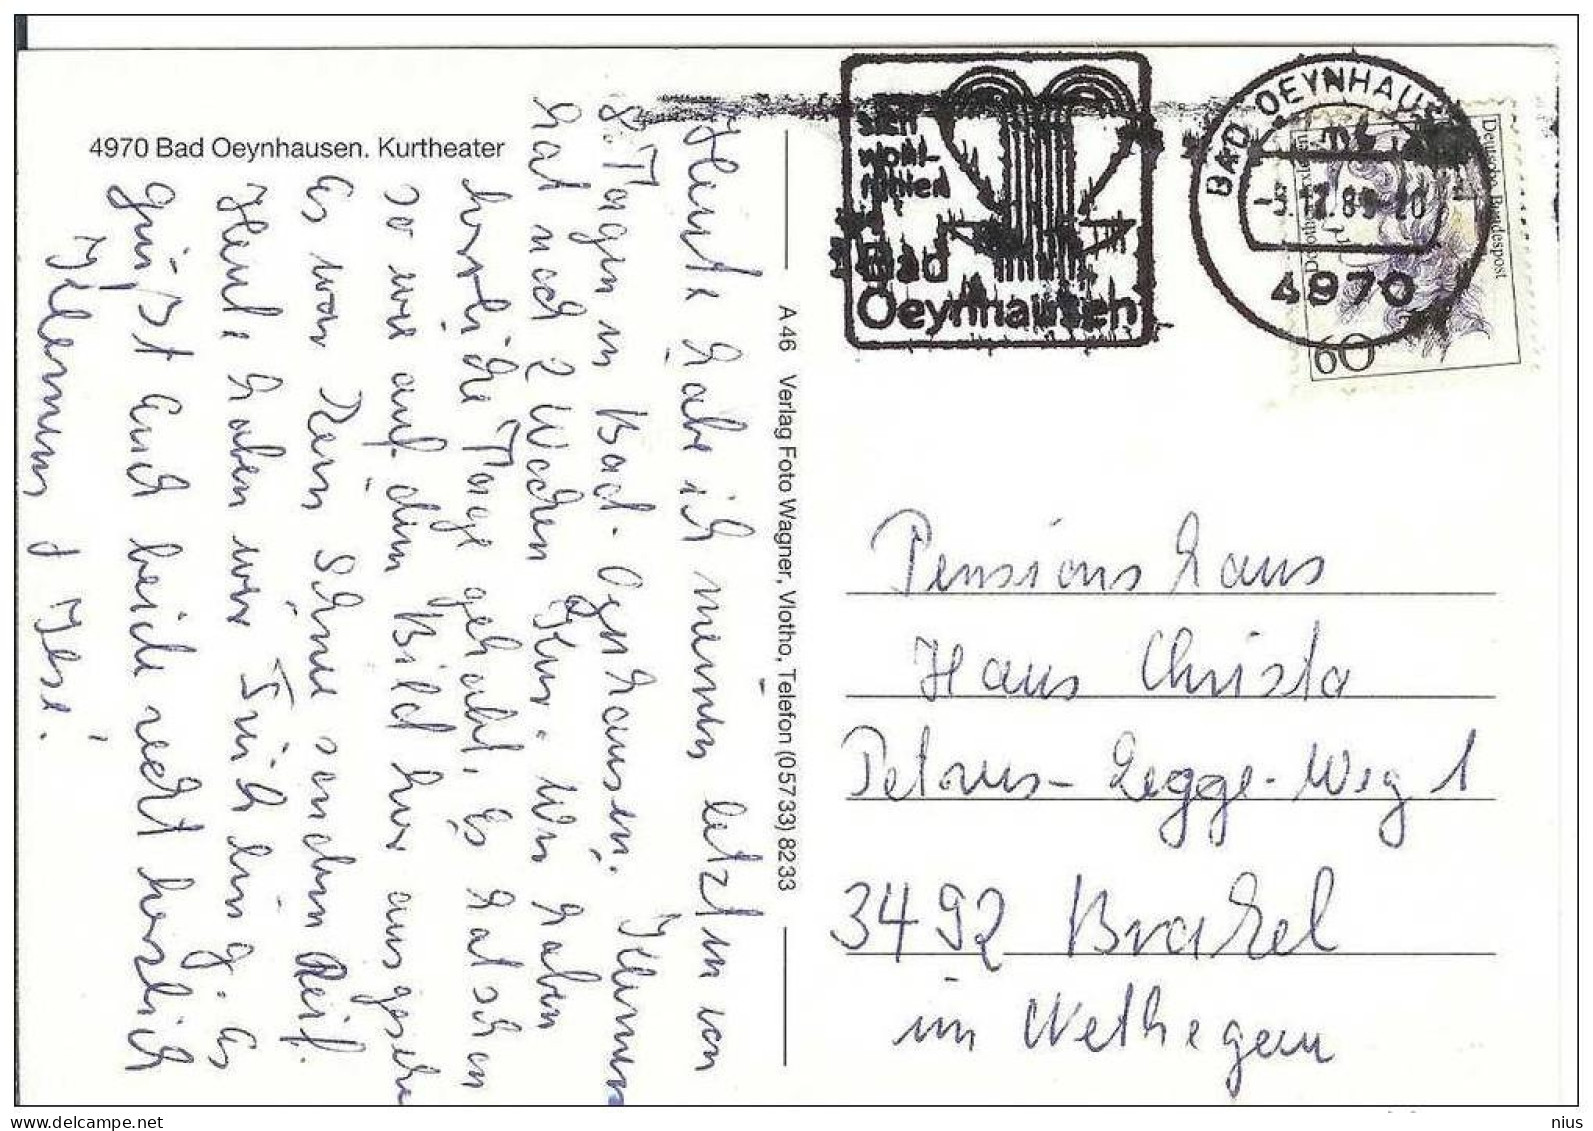 4970 Bad Oeynhausen. Kurtheater
Heute habe ich meinen letzten von
8. Tagen in Bad. Oynhausen. Hermann
hat noch 2 Wochen Kur. Wir haben
herrliche Tage gehabt. Es hat schon
so wie auf dem Bild hier ausgesehen
Es war kein Schnee sondern Reif.
Heute haben wir Frühling. Es
grüßt Euch beide recht herzlich
Hermann & Ilse!
A 46 Verlag Foto Wagner, Vlotho, Telefon (05733) 8233
sich
wohl-
fühlen
Bad
Oeynhausen
BAD OEYNHAUSEN
4970
Deutsche Bundespost
60
Pensionshaus
Haus Christa
Petrus-Legge-Weg 1
3492 Brakel
im Wethegau
nadelburg.com
nius